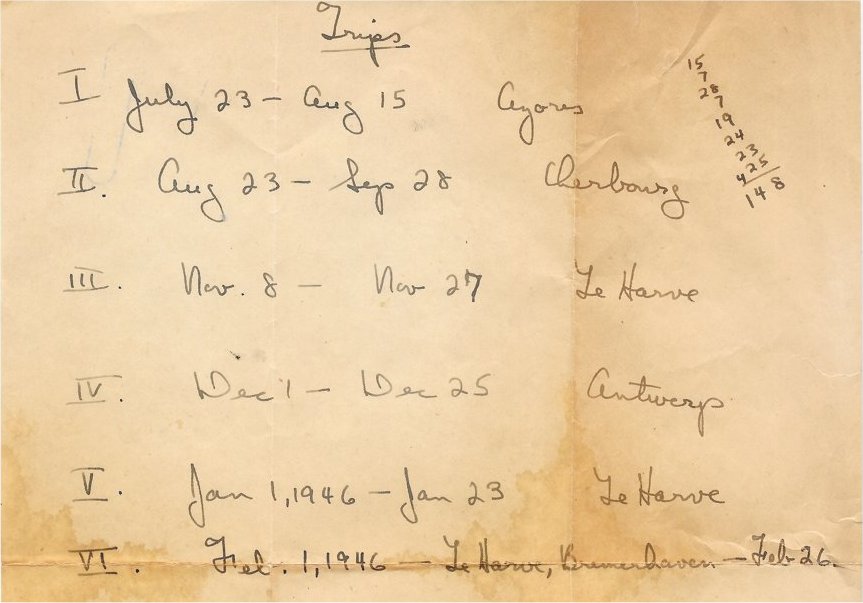 Trips
I July 23 - Aug 15 Azores
II. Aug 23 - Sep 28 Cherbourg
III. Nov. 8 - Nov 27 Le Harve
IV. Dec 1 - Dec 25 Antwerp
V. Jan 1, 1946 - Jan 23 Le Harve
VI. Feb. 1, 1946 - Le Harve, Bremerhaven - Feb 26.
15
7
28
7
19
24
23
25
4
148